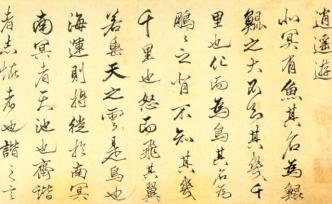 逍遥遊
北冥有魚其名為鯤
鯤之大不知其幾千
里也化而為鳥其名為
鵬〻之背不知其幾
千里也怒而飛其翼
若垂天之雲是鳥也
海運則將徙於南冥
南冥者天池也齊諧
者志怪者也諧之言